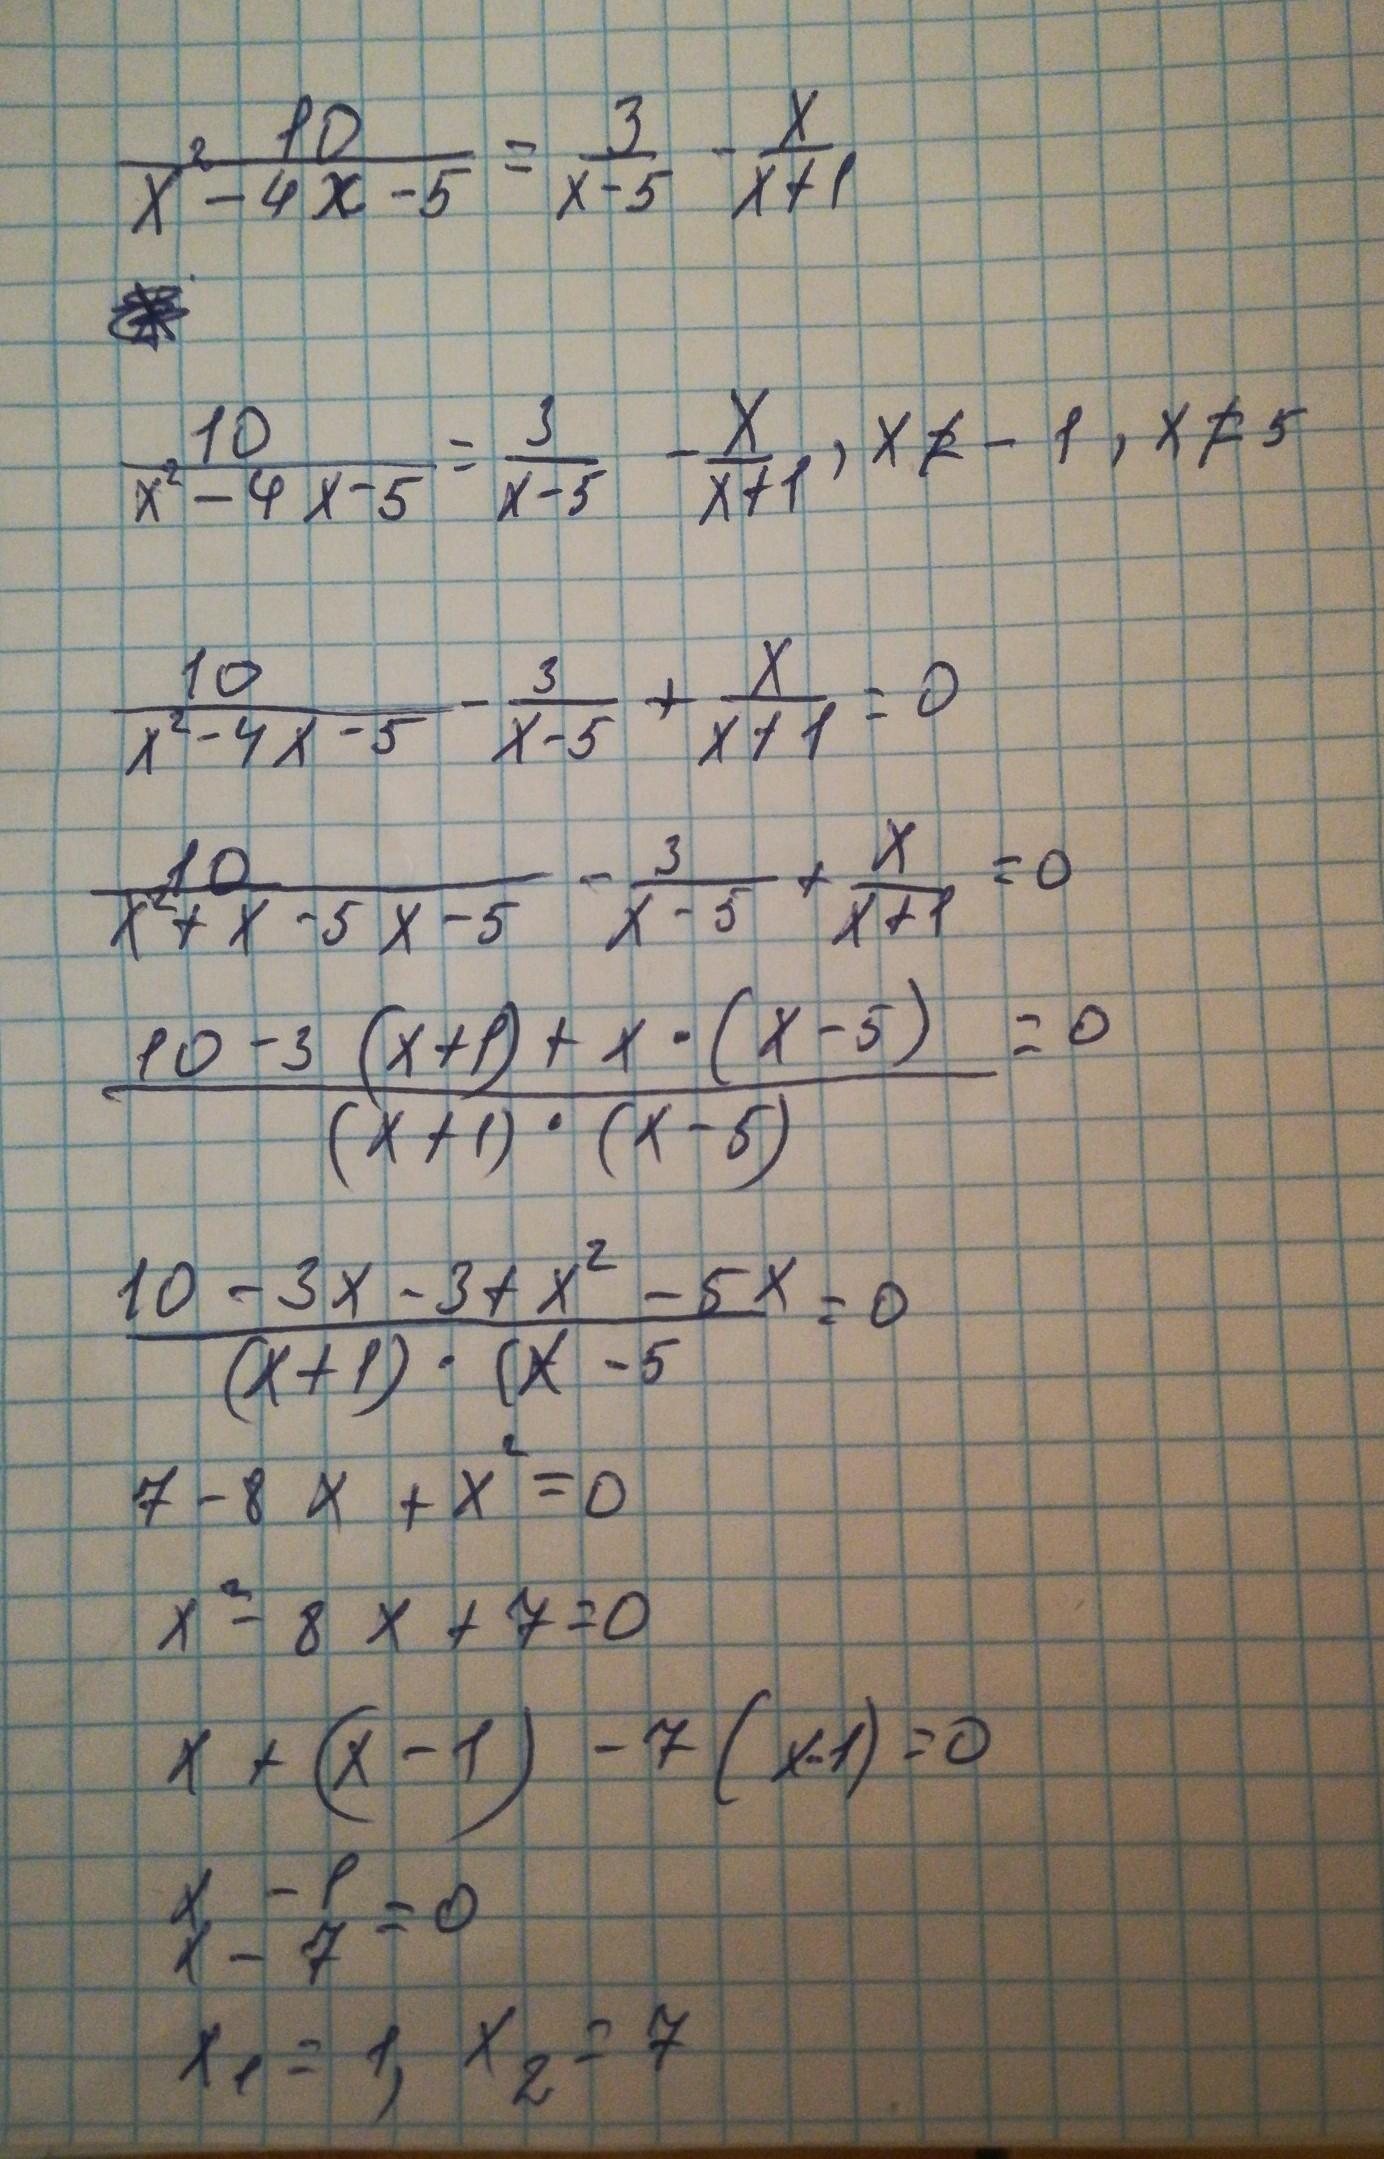 10/(x² - 4x - 5) = 3/(x - 5) - x/(x + 1)
10/(x² - 4x - 5) = 3/(x - 5) - x/(x + 1), x ≠ - 1, x ≠ 5
10/(x² - 4x - 5) - 3/(x - 5) + x/(x + 1) = 0
10/(x² + x - 5x - 5) - 3/(x - 5) + x/(x + 1) = 0
(10 - 3(x + 1) + x · (x - 5))/((x + 1) · (x - 5)) = 0
(10 - 3x - 3 + x² - 5x)/((x + 1) · (x - 5) = 0
7 - 8x + x² = 0
x² - 8x + 7 = 0
x + (x - 1) - 7(x - 1) = 0
x - 1
x - 7 = 0
x₁ = 1, x₂ = 7